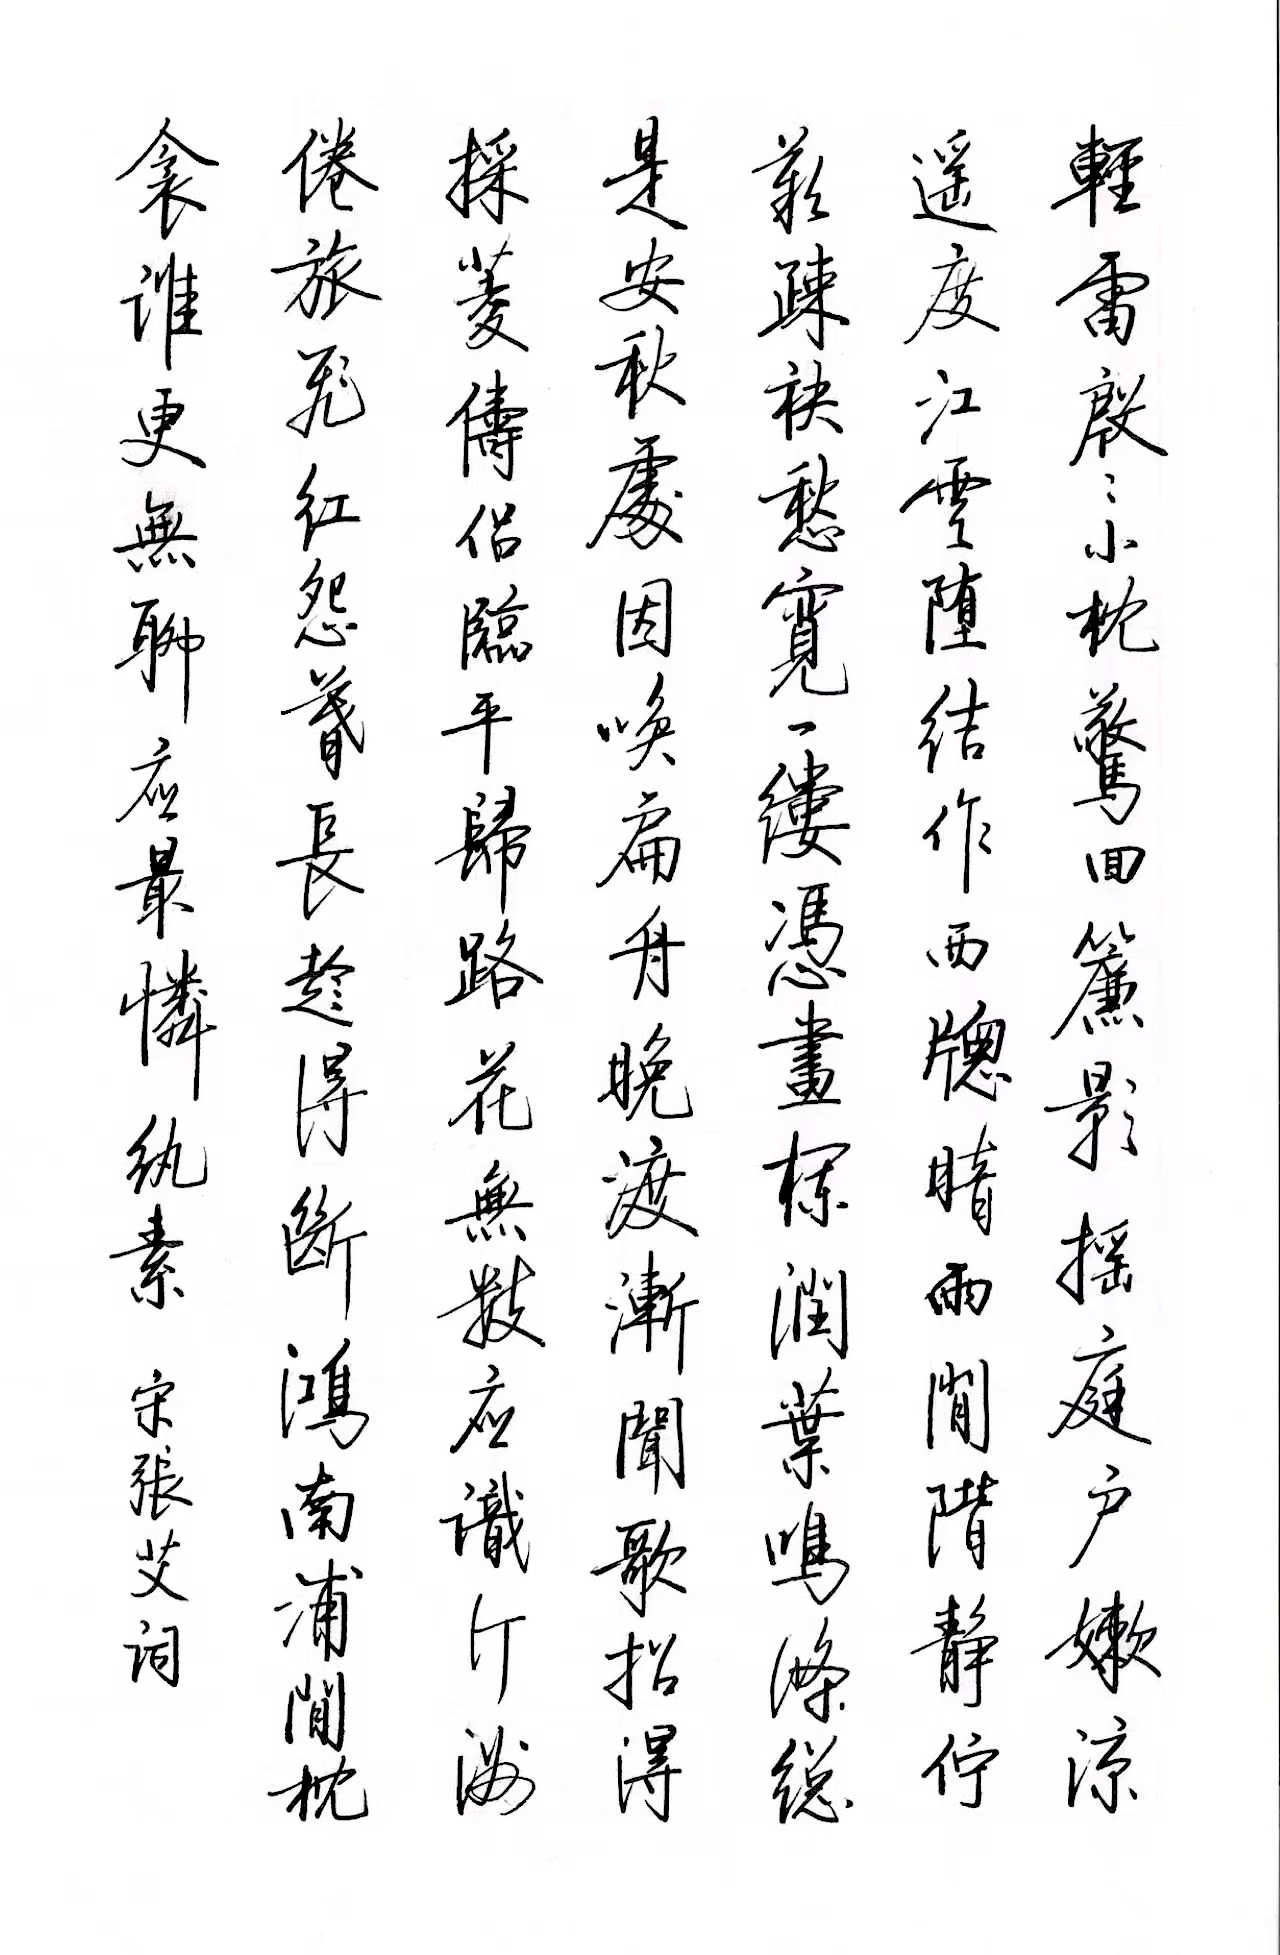 輕雷殷〻小枕驚回簾影搖庭户嫩涼
遥度江雲墮結作西牕暗雨閒階靜佇
歎疎袂愁寬一縷憑畫欄潤葉鳴條總
是安秋處因喚扁舟晚渡漸聞歌招得
採菱儔侣臨平歸路花無數应識汀洲
倦旅飛紅怨暮長趁得斷鴻南浦閒枕
衾誰更無聊应最憐紈素 宋張艾詞